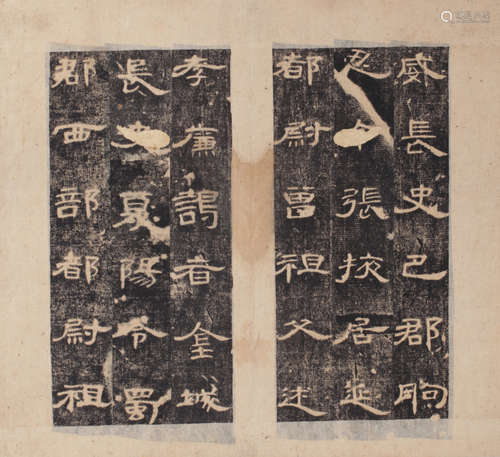 威長史巴郡朐
忍令張掖居延
都尉曾祖父述
孝廉謁者金城
長史夏陽令蜀
郡西部都尉祖